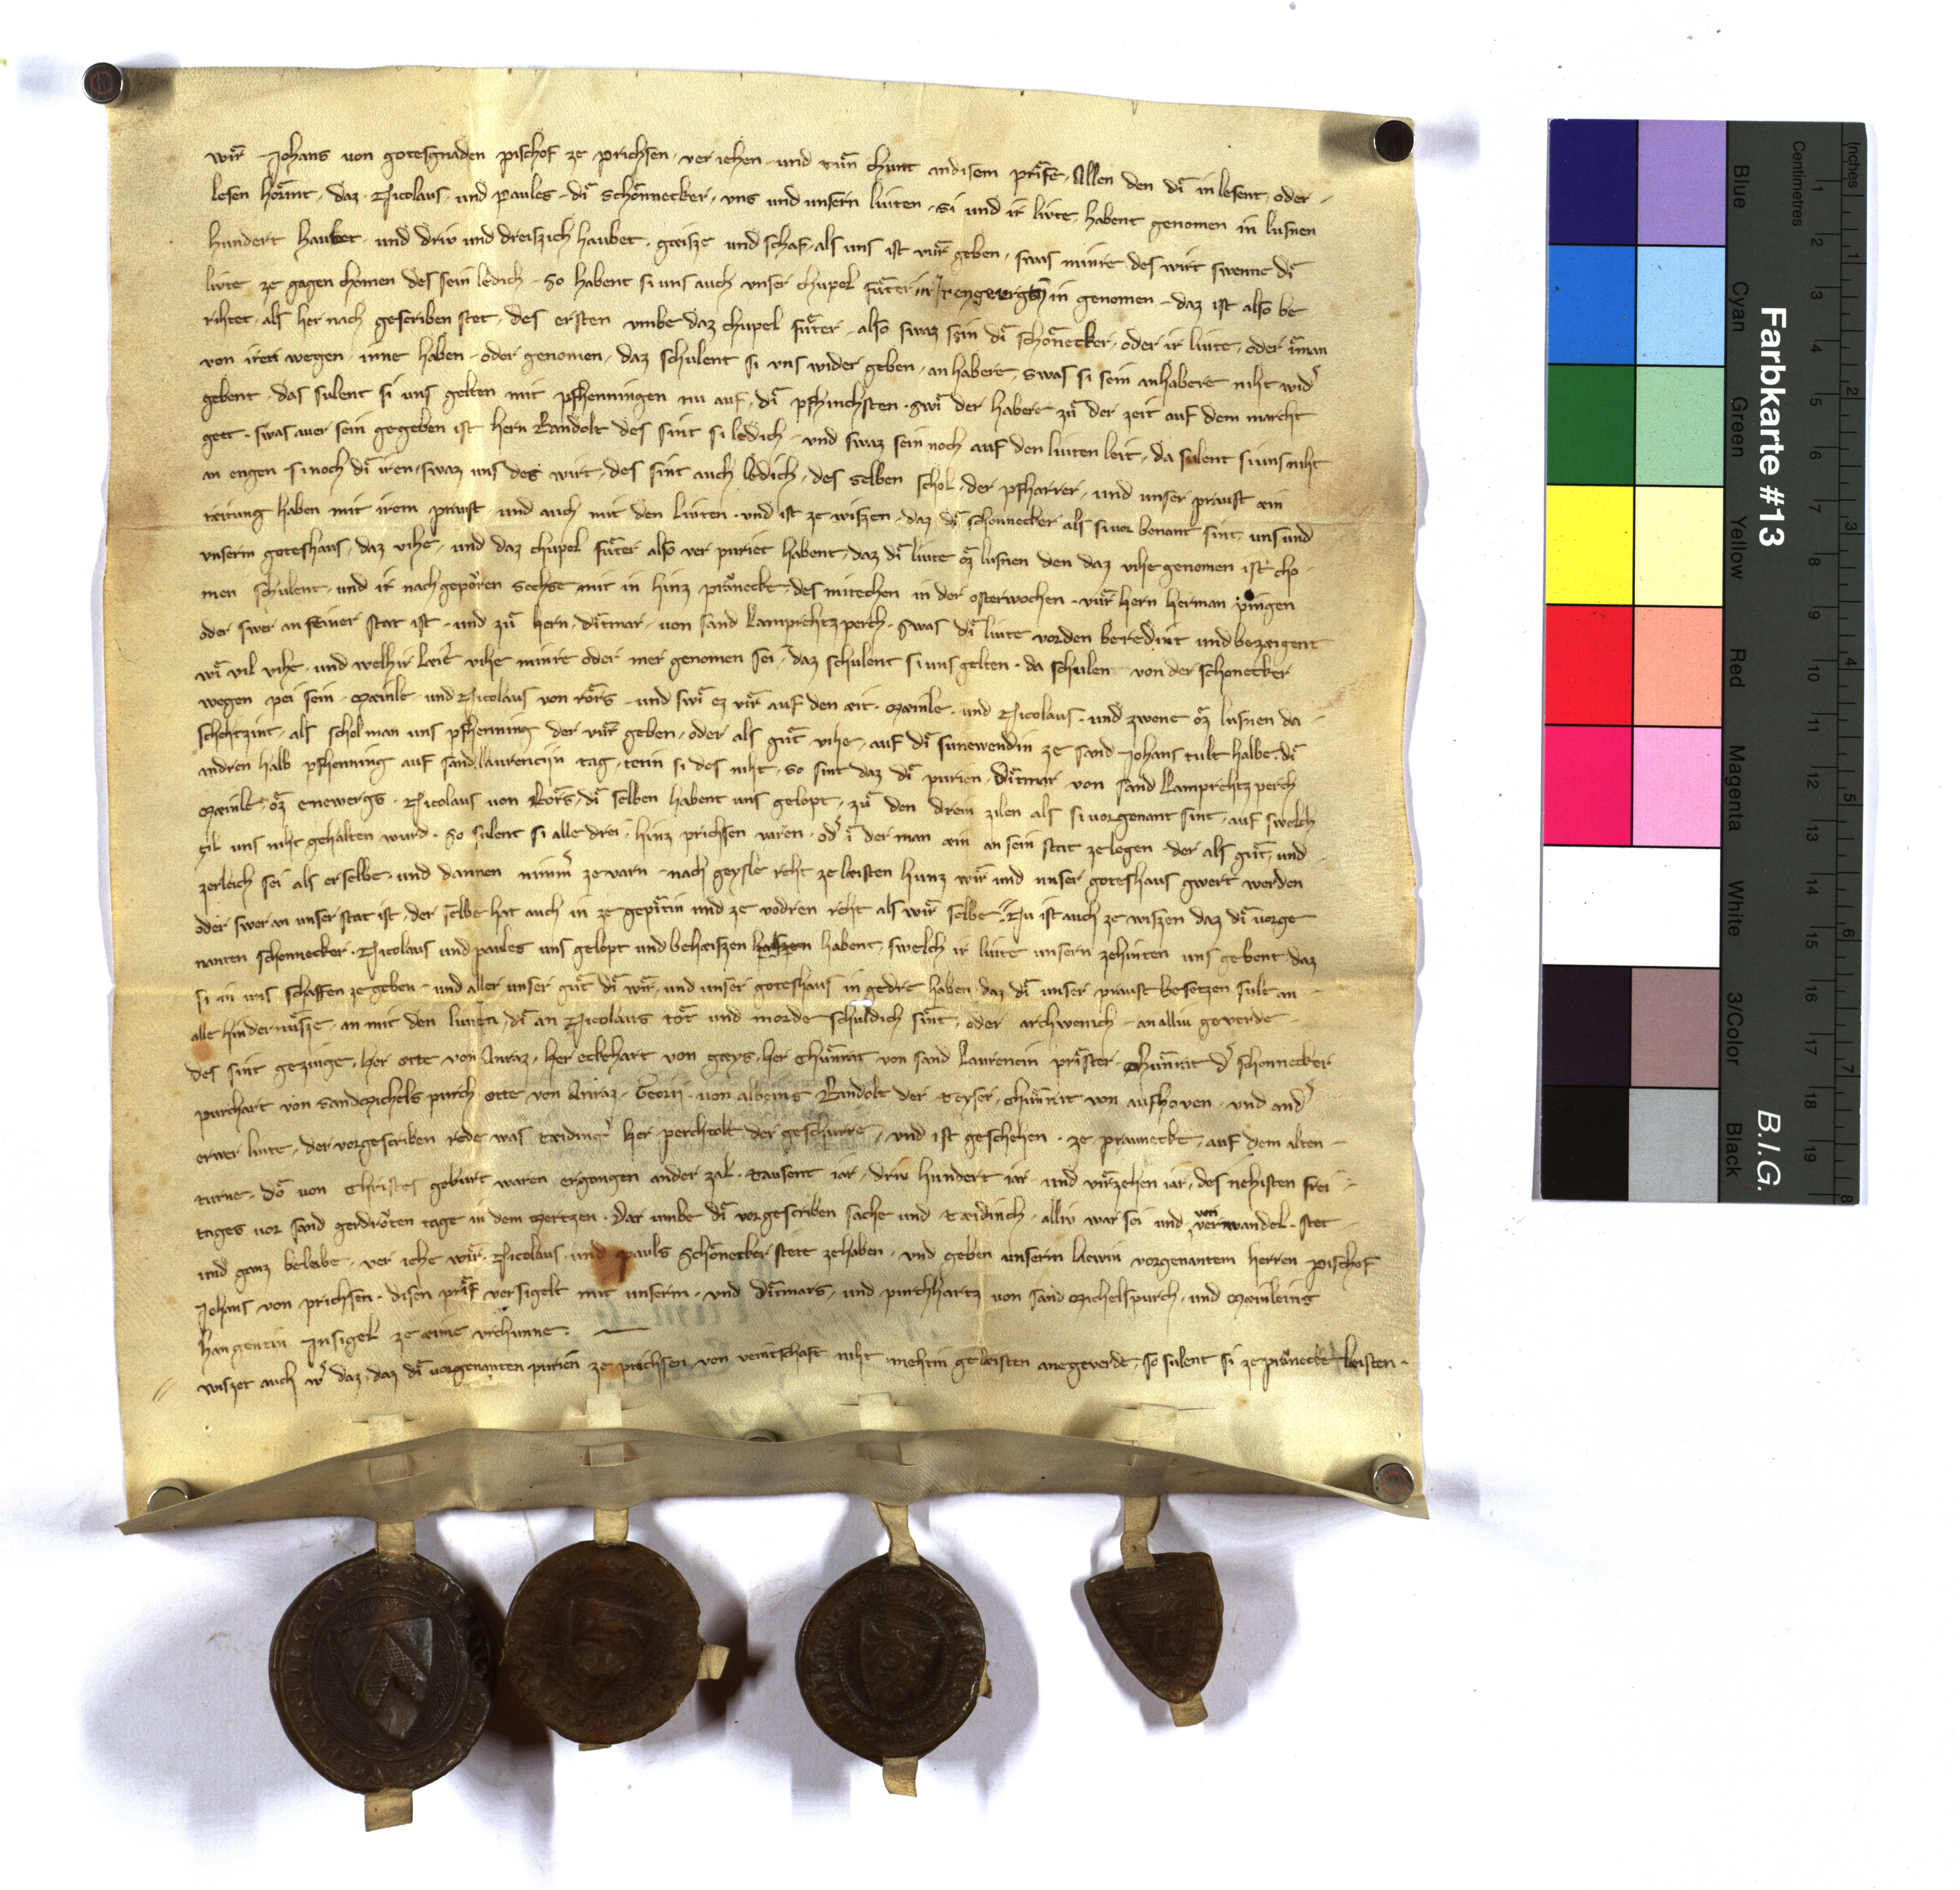 wir Johans von gotesgnaden pischof ze prichsen, ver iehen und tun chunt andisem prife, Allen den di in lesent, oder
lesen hörnt, daz Nicolaus und Paules di Schönnecker, uns und unsern liuten, si und ir liute, habent genomen in lusnen
hundert haubet, und driv und dreiszich haubet, gæisze und schaf, als uns ist vür geben, swas minre des wirt swenne di
livte ze gagen chomen des sein ledich. So habent si uns auch unser chupel füter in genomen, daz ist also be
rihtet, als her nach gescriben stet, des ersten umbe daz chupel füter, also swaz sein di schönecker, oder ir liute, oder iman
von iren wegen, inne haben, oder genomen, daz schulent si uns wider geben, an habere, swas si sein anhabere niht wid
gebent, das sulent si uns gelten mit pfhenningen nu auf, di pfhinchsten, swi der habere zu der zeit auf dem marcht
get. swas auer sein gegeben ist hern Randolt des sint si ledich, und swaz sein noch auf den liuten leit, da sulent si uns niht
an engen, si noch di iren, swaz uns des wirt, des sint auch ledich, des selben schol, der pfharrer, und unser praust ain
raitung haben mit irem praust, und auch mit den livten, und ist ze wiszen, daz di schonnecker als si vor benant sint, uns und
unserm goteshaus, daz vihe, und daz chupel füter also ver puriet habent, daz di liute oz lusnen den daz vihe genomen ist cho
men schulent, und ir nachgeporen sechse mit in hinz pranecke, des mitechen in der osterwochen, vur hern herman
oder swer an seiner stat ist, und zu hern, ditmar, von sand Lamprehtzperch. Swas di liute vorden beredint und bezaigent
wi vil vihe, und welhir laie vihe minre oder mer genomen sei, daz schulent si uns gelten. da schulen von der schonecker
wegen pei sein, Mæinle, und Nicolaus von rors, und swi ez vir auf den ait, Mæinle, und Nicolaus, und zwene oz lusnen da
schehtzint, als schol man uns pfhenning der vür geben, oder als gut vihe, auf di sunewendin ze sand Johans tult halbe, di
andren halb pfhenning auf sand laurencijn tag, tetin si des niht, so sint daz di purien, Ditmar von sand Lamprehtzperch
Mæinle, oz enewergs, Nicolaus von Rors, di selben habent uns gelopt, zu den drein zilen als si vorgenant sint, auf swelch
zil uns niht gehalten wurd. So sulent si alle drei, hinz prichsen varen, od i der man ain an sein stat zelegen, der als gut, und
zerleich sei als er selbe, und dannen nimm ze varn, nach geysle reht ze læisten hunz wir und unser goteshaus gwert werden
oder swer an unser stat ist, der selbe hat auch in ze gepitin und ze vodren reht als wir selbe. Nu ist auch ze wiszen daz di vorge
nanten schonnecker, Nicolaus und paules uns gelopt und behaiszen habent, swelch ir liute unsern zehinten uns gebent daz
si in uns schaffen ze geben, und aller unser gut di wir, und unser goteshaus in gedre haben, daz di unser praust besetzen sule an
alle hindernusze, an mit den liuten, di an Nicolaus tot und morde schuldich sint, oder archwenich, an alliu geverde
des sint gezeuge, her otte von Anraz, her eckehart von gæys, her Chunrat von sand Laurencin prister, Chunrat d schonnecker
purchart von sand Michels purch otte von Anraz, Georij von albeins Randolt der teyser, Chunrat von aufhoven, und and
erwer liute, der vorgescriben rede was tædingr her perchtolt der geschurre, und ist geschehen, ze praunecke, auf dem alten
turne, do von Christes geburt waren ergangen ander zal, tausent iar, driv hundert iar und virzehen iar, des nehisten frei
tages vor sand gerdroten tage in dem Mertzen. Dar umbe di vorgescriben sache und tædinch, alliv war sei und von verwandel, stet
und ganz beleibe, ver iehe wir, Nicolaus und pauls Schönecker stet zehaben, und geben unserm liewin vorgenantem herren pischof
Johans von prichsen, disen prif versigelt mit unserm, und Ditmars, und purchhartz von sand Michelspurch, und Mæinleins
hangentin Insigel ze aine urchunne.
wiszet auch daz, daz di vorgenanten purien ze prichsen von veintschaft niht mehtin gelaisten anegeverde, so sulent si ze pranecke laisten.
Farbkarte #13
B.I.G.
Inches
Centimetres
Blue
Cyan
Green
Yellow
Red
Magenta
White
3/Color
Black
1 2 3 4 5 6 7 8 9 10 11 12 13 14 15 16 17 18 19
1 2 3 4 5 6 7 8